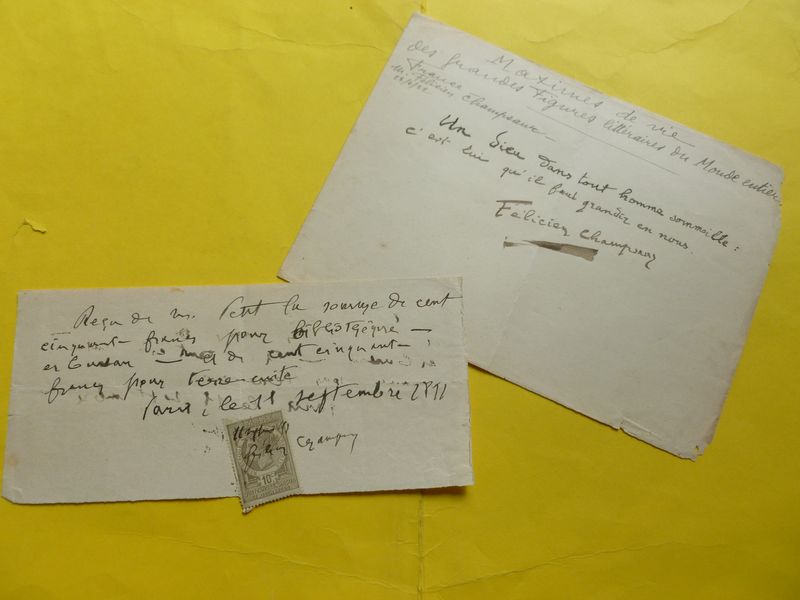 Maximes de vie
des grandes Figures littéraires du Monde entier.
France
M. Félicien Champsaur
Un Dieu dans tout homme sommeille :
c'est lui qu'il faut grandir en nous.
Félicien Champsaur
Reçu de M. Petit la somme de cent
cinquante francs pour bibliothèque
et de cent cinquante
francs pour terre cuite
Paris, le 11 septembre 1891
11 septembre 91
Félicien Champsaur
10